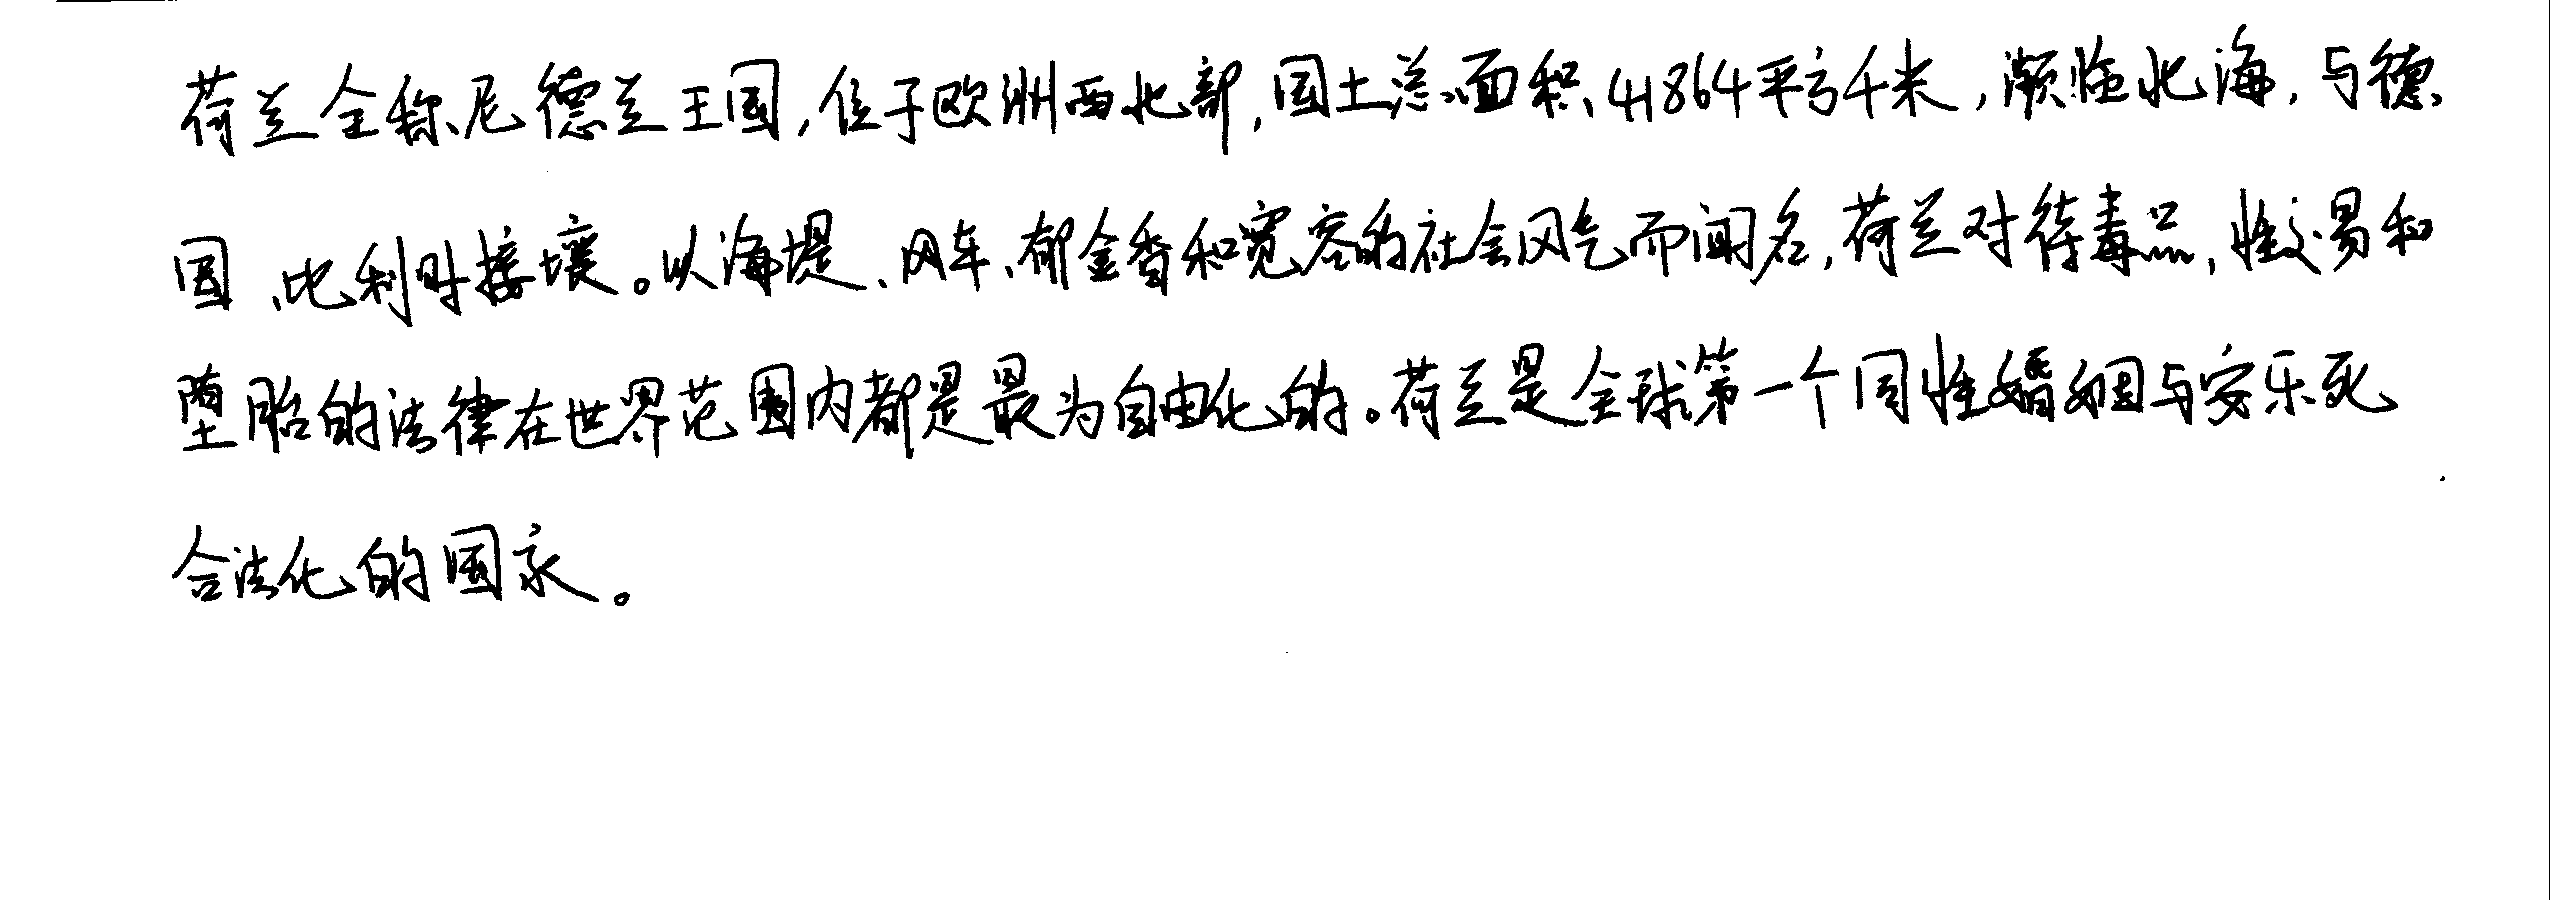 荷兰全称尼德兰王国,位于欧洲西北部,国土总面积41864平方千米,濒临北海,与德
国、比利时接壤。以海堤、风车、郁金香和宽容的社会风气而闻名,荷兰对待毒品,性交易和
堕胎的法律在世界范围内都是最为自由化的。荷兰是全球第一个同性婚姻与安乐死
合法化的国家。